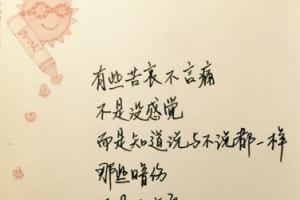 有些苦衷不言痛
不是没感觉
而是知道说与不说都一样
那些暗伤